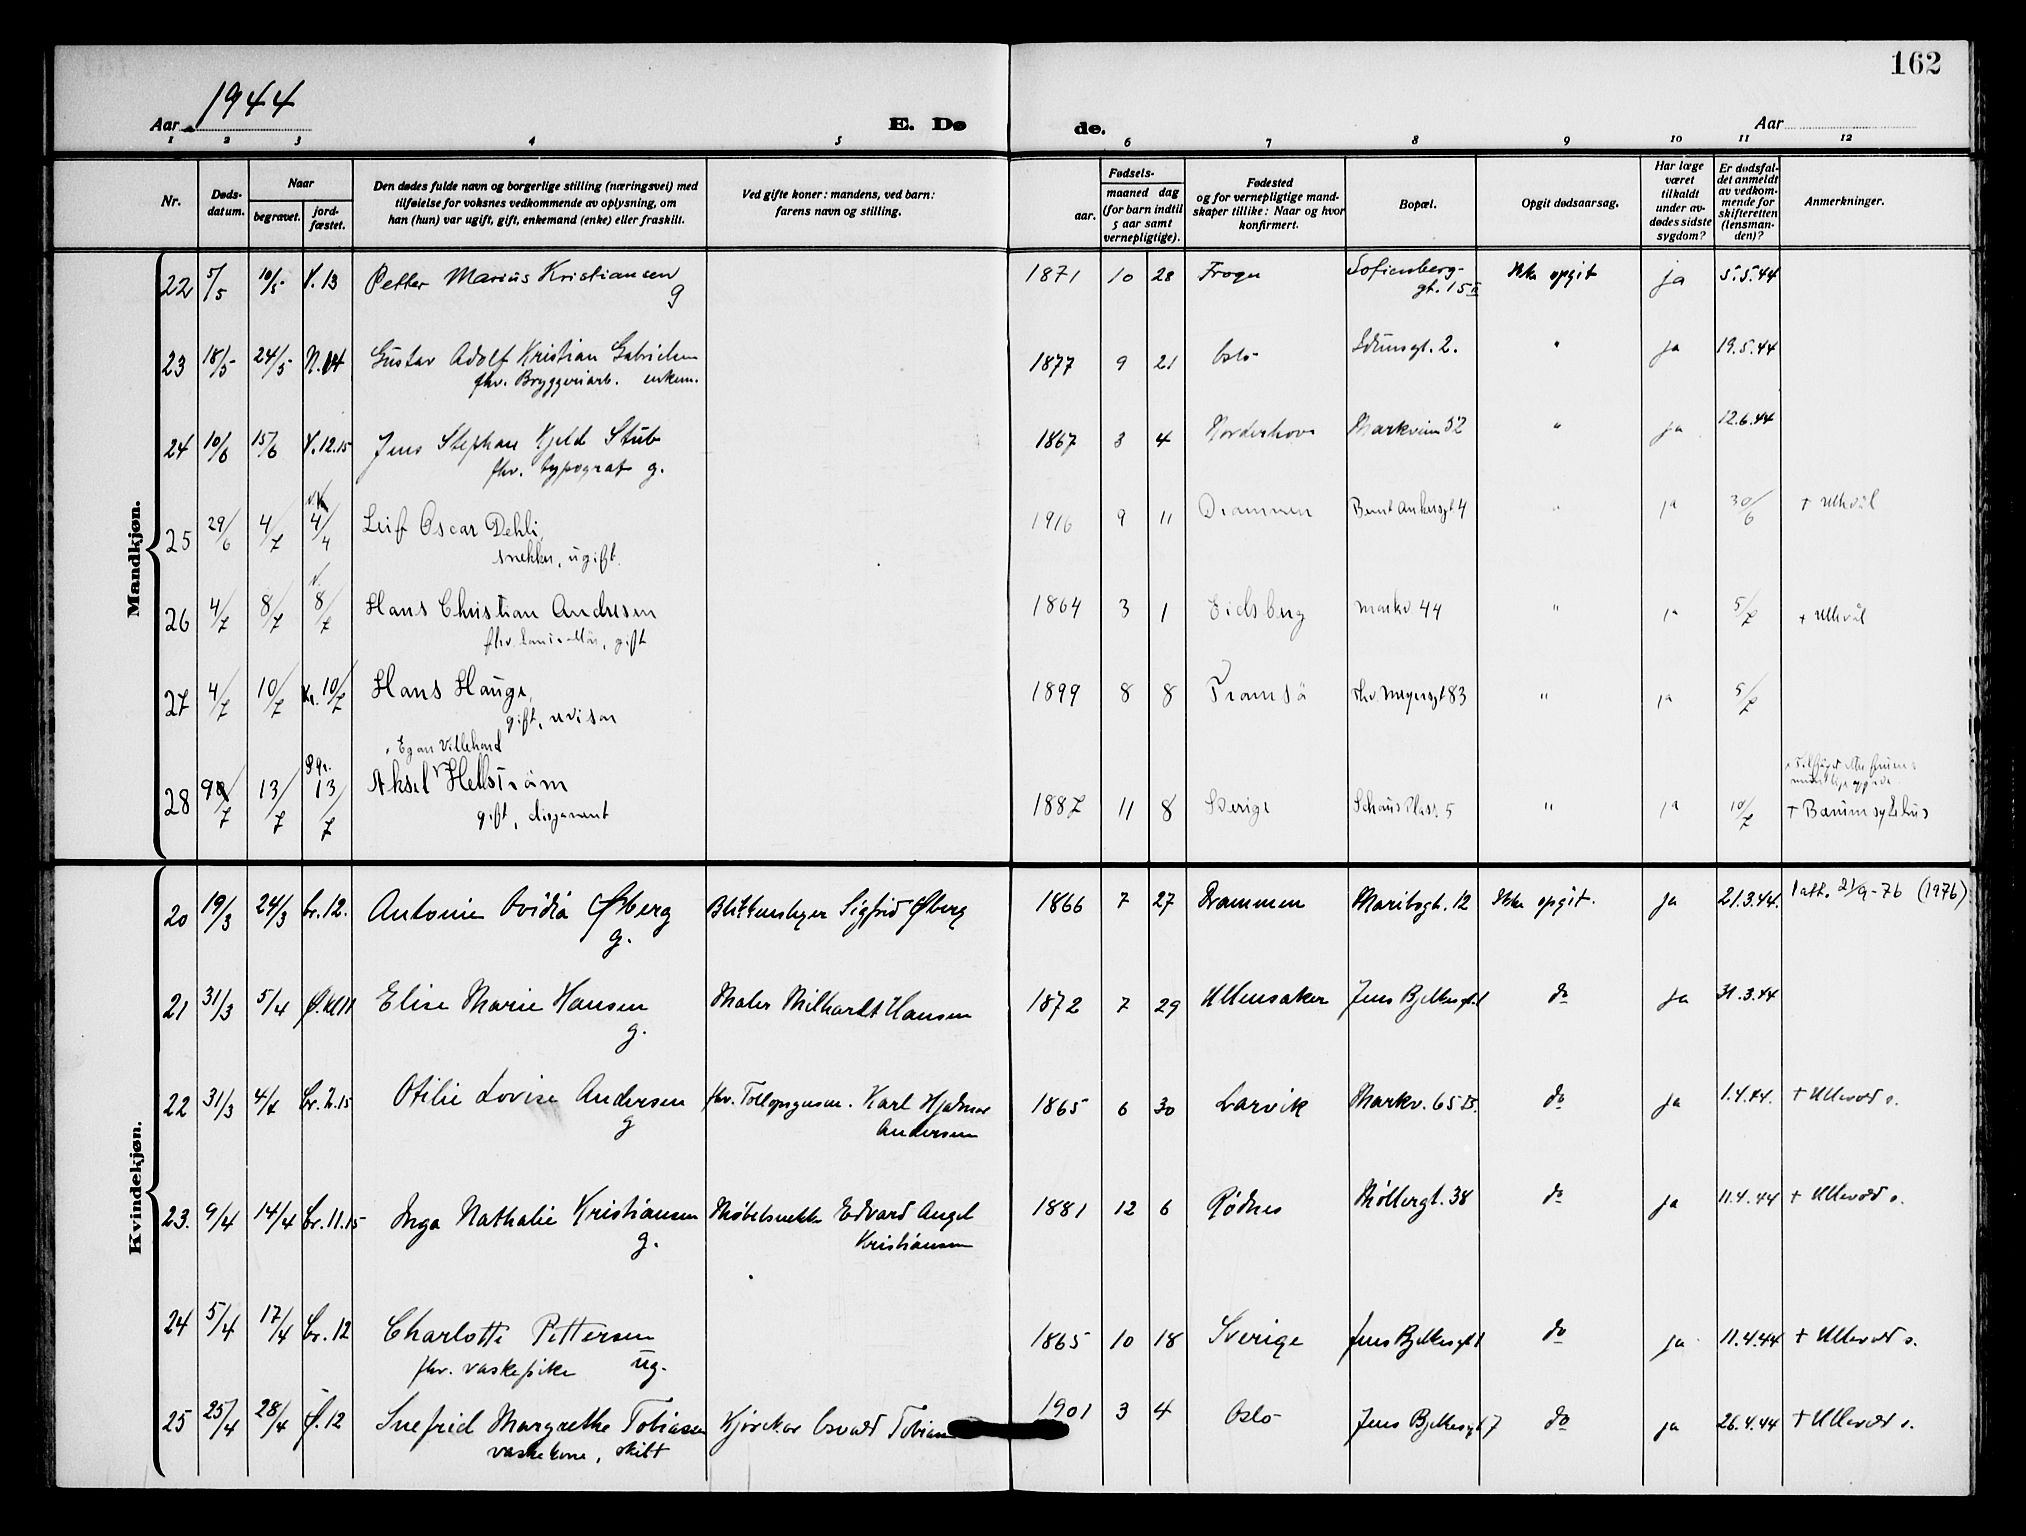 162
Aar 1944
E. Dø de.
Aar
1 2 3 4 5 6 7 8 9 10 11 12
Nr.
Døds-
datum.
Naar
begravet.
jord-
fæstet.
Den dødes fulde navn og borgerlige stilling (næringsvei) med
tilføielse for voksnes vedkommende av oplysning, om
han (hun) var ugift, gift, enkemand (enke) eller fraskilt.
Ved gifte koner: mandens, ved barn:
farens navn og stilling.
Fødsels-
aar.
maaned dag
(for barn indtil
5 aar samt
vernepligtige).
Fødested
og for vernepligtige mand-
skaper tillike: Naar og hvor
konfirmert.
Bopæl.
Opgit dødsaarsag.
Har læge
været
tilkaldt
under av-
dødes sidste
sygdom?
Er dødsfal-
det anmeldt
av vedkom-
mende for
skifteretten
(lensman-
den)?
Anmerkninger.
Mandkjøn.
22 5/5 10/5 V. 13 Petter Marius Kristiansen 1871 10 28 Frogn Sofienberg- Ikke opgit ja 5.5.44
g gt. 15 II
23 18/5 24/5 N. 14 Gustav Adolf Kristian Gabrielsen 1877 9 21 Oslo 2. " ja 19.5.44
fhv. Bryggeriarb. enkem.
24 10/6 15/6 V. 12.15 Jens Stephan Kjeld Stub 1867 3 4 Norderhov Markveien 52 " ja 12.6.44
fhv. typograf g.
25 29/6 4/7 4/4 Leif Oscar Dehli, 1916 9 11 Drammen Bernt Ankersgt 4 " ja 30/6 + Ullevål
snekker, ugift.
26 4/7 8/7 v. 8/7 Hans Christian Andresen 1864 3 1 Eidsberg Markv 44 " ja 5/7 + Ullevål
fhv. gift
27 4/7 10/7 Kr. 10/7 Hans Hauge, 1899 8 8 Tromsö Thv. Meyersgt 83 " ja 5/7
gift, revisor
Egon Villehard
28 9/7 13/7 13/7 Aksel Hellström 1887 11 8 Sverige Schaus Plass 5 " ja 10/7 + Bærum sykehus
gift, disponent
Kvindekjøn.
20 19/3 24/3 Cr. 12. Antonie Ovidia Øberg Blikkenslager Sigfrid Øberg 1866 7 27 Drammen Maribogt. 12 Ikke opgit. ja 21.3.44. 1 att. 21/9-76 (1976)
g.
21 31/3 5/4 Ø. kl 11 Elise Marie Hansen Maler Milhardt Hansen 1872 7 29 Ullensaker Jens Bjelkesgt do ja 31.3.44
g.
22 31/3 4/4 Cr. 2.15 Otilie Lovise Andersen fhv. Tollopsynsm. Karl Hjalmar 1865 6 30 Larvik Markv. 65 B. do ja 1.4.44. + Ullevål s.
g Andersen
23. 9/4 14/4 Cr. 11.15 Inga Nathalie Kristiansen Møbelsnekker Edvard Angel 1881 12 6 Rødnes Møllergt. 38 do ja 11.4.44 + Ullevål s.
g. Kristiansen
24 5/4 17/4 Cr. 12 Charlotte Pettersen 1865 10 18 Sverige Jens Bjelkesgt 1 do ja 11.4.44 + Ullevål s.
fhv. vaskepike ug.
25 25/4 28/4 Ø. 12 Snefrid Margrethe Tobiassen Kjørekar Osvald 1901 3 4 Oslo Jens Bjelkesgt 7 do ja 26.4.44 + Ullevål s.
vaskekone, skilt